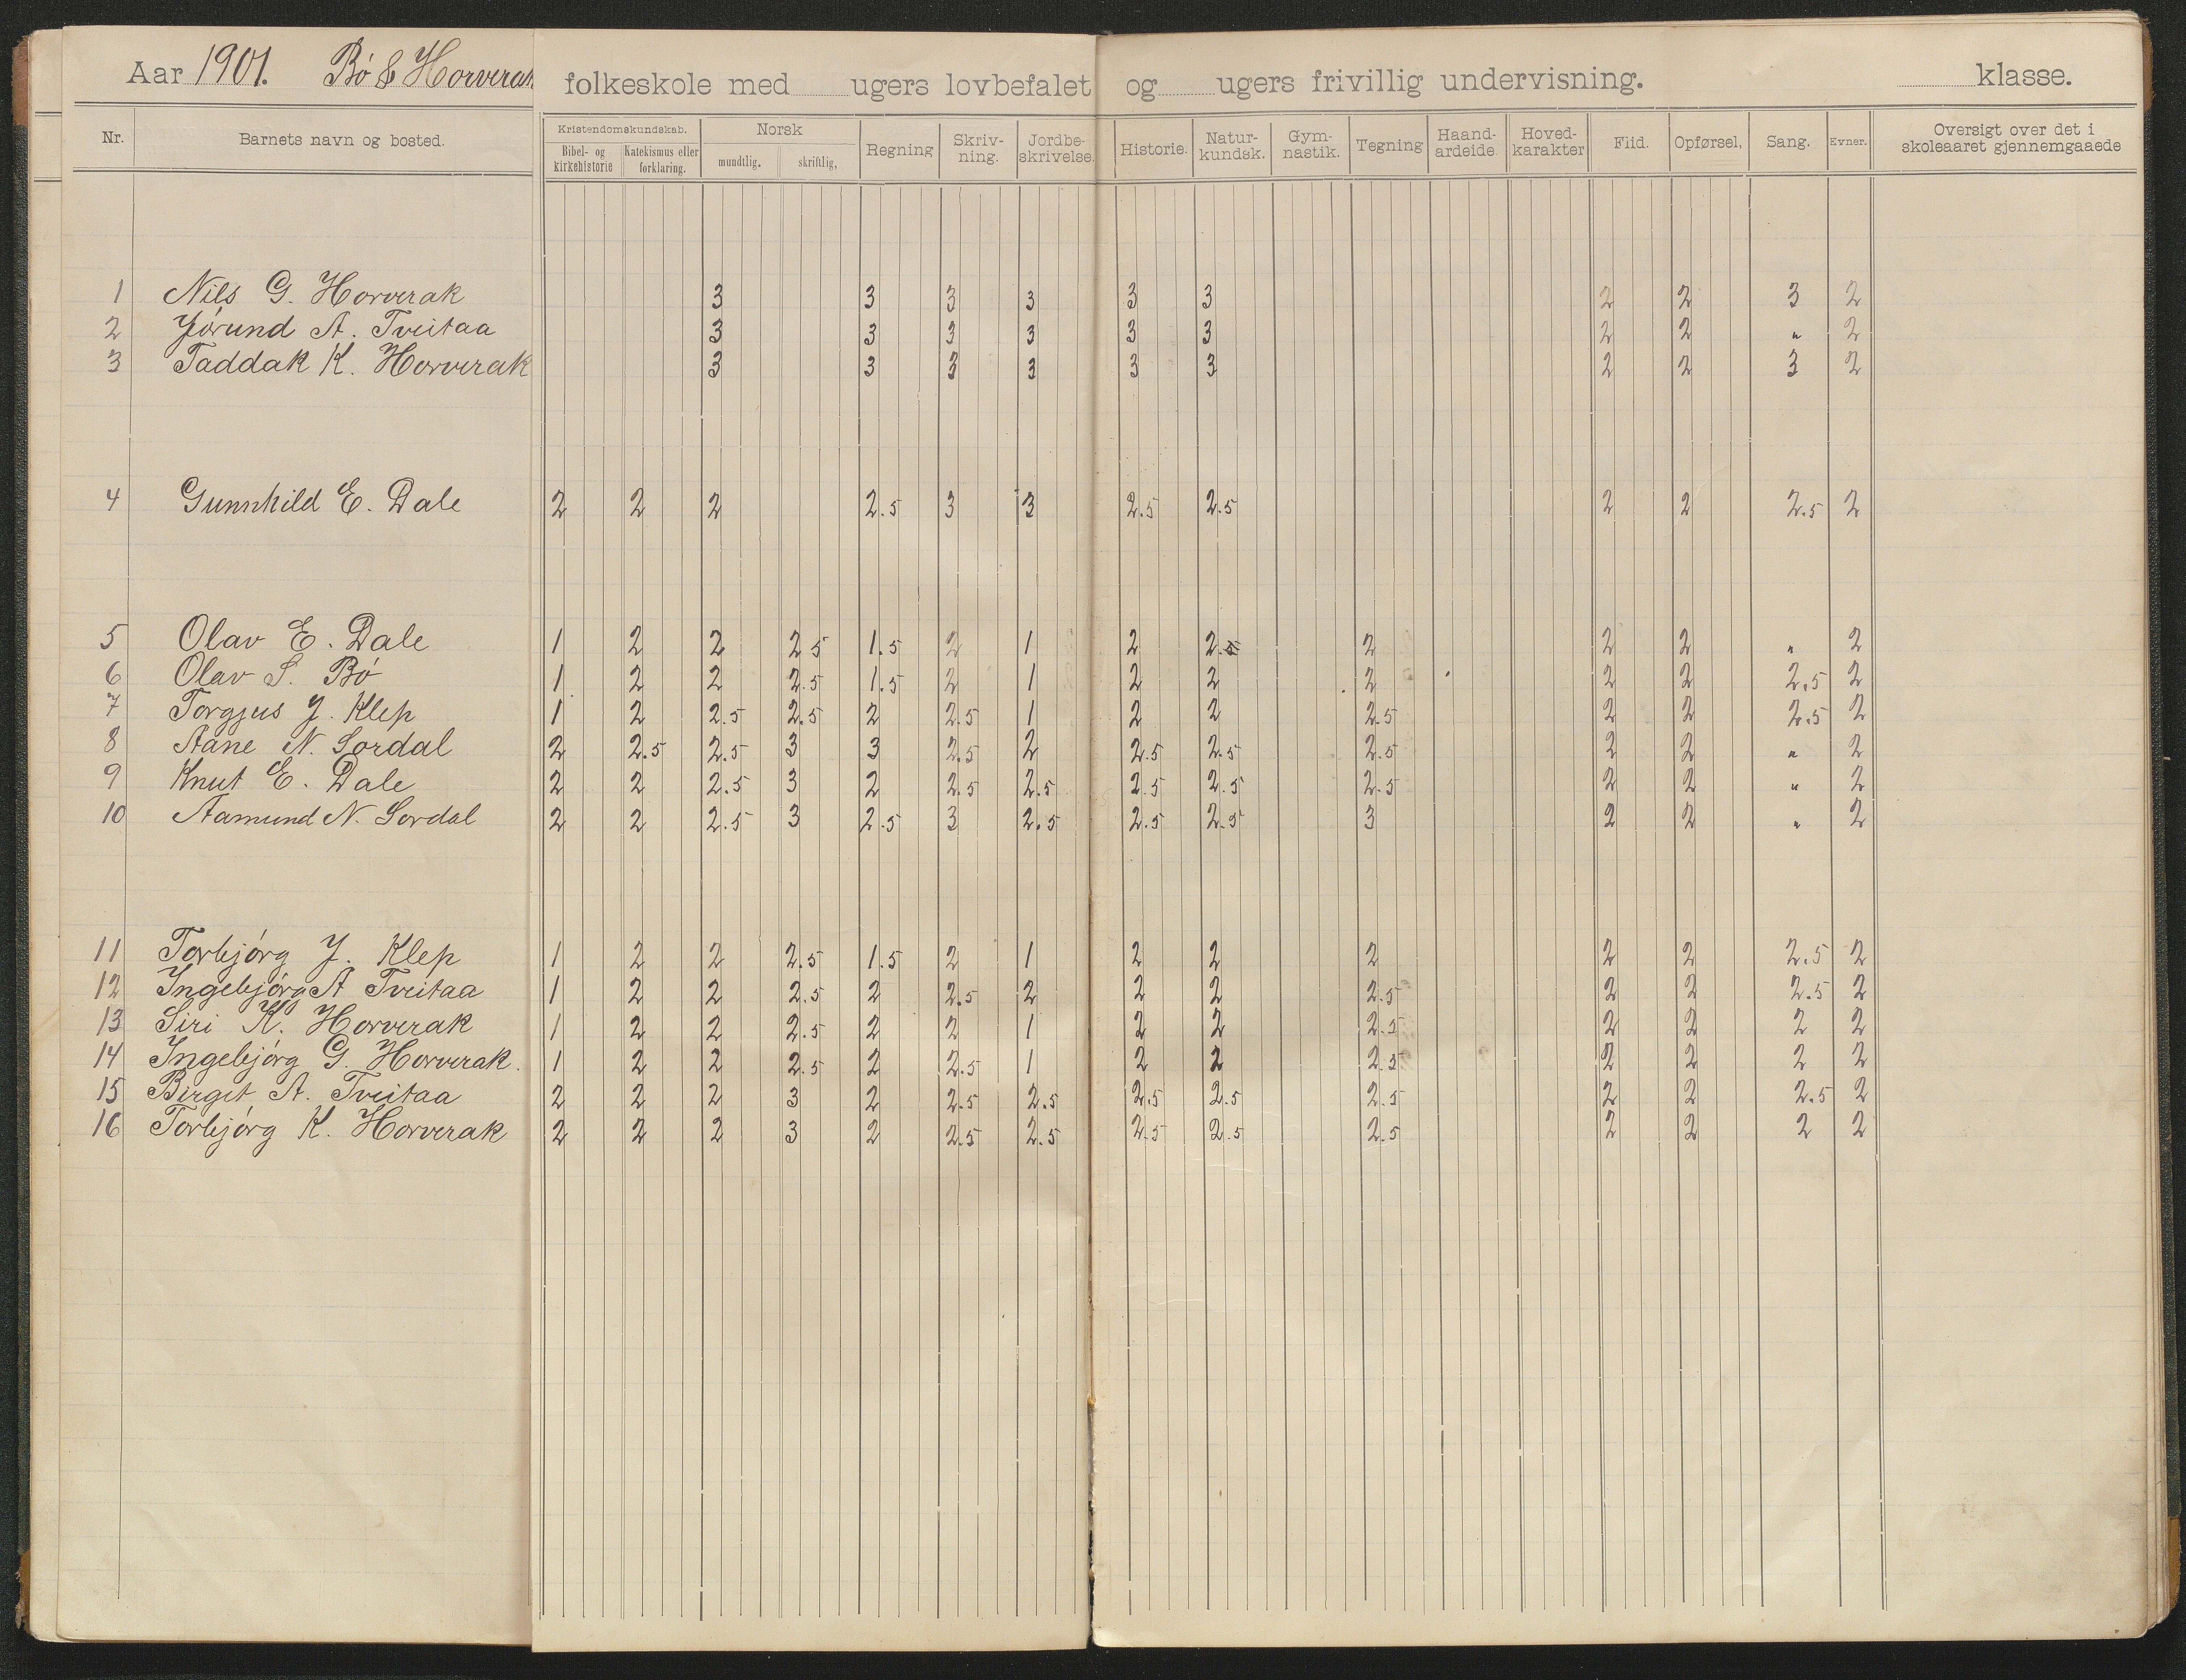 Aar 1901. Bó & Horverak folkeskole med ugers lovbefalet og ugers frivillig undervisning. klasse.
Nr. Barnets navn og bosted. Kristendomskundskab. Bibel- og kirkehistorie Katekismus eller forklaring. Norsk mundtlig. skriftlig, Regning Skriv-ning. Jordbe-skrivelse. Historie. Natur-kundsk. Gym-nastik. Tegning Haand-arbeide Hoved-karakter Flid. Opførsel, Sang. Evner. Oversigt over det i skoleaaret gjennemgaaede
1 Nils G. Horverak 3 3 3 3 3 3 2 2 3 2
2 Jórund A. Tveitaa 3 3 3 3 3 3 2 2 " 2
3 Taddak K. Horverak 3 3 3 3 3 3 2 2 3 2
4 Gunnhild E. Dale 2 2 2 2.5 3 3 2.5 2.5 2 2 2.5 2
5 Olav E. Dale 1 2 2 2 5 1.5 2 1 2 2.5 2 2 2 " 2
6 Olav S. Bó 1 2 2 2.5 1.5 2 1 2 2 2 2 2 2.5 2
7 Torgjus J. Klep 1 2 2.5 2.5 2 2.5 1 2 2 2.5 2 2 2.5 2
8 Aane N. Sordal 2 2.5 2.5 3 3 2.5 2 2.5 2.5 2.5 2 2 " 2
9 Knut E. Dale 2 2 2.5 3 2 2.5 2.5 2.5 2.5 2.5 2 2 " 2
10 Aamund N. Sordal 2 2 2.5 3 2.5 3 2.5 2.5 2.5 3 2 2 " 2
11 Torbjórg J. Klep 1 2 2 2.5 1.5 2 1 2 2 2 2 2 2.5 2
12 Ingebjórg A Tveitaa 1 2 2 2.5 2 2.5 2 2 2 2.5 2 2 2.5 2
13 Siri K. Horverak 1 2 2 2.5 2 2 1 2 2 2.5 2 2 2 2
14 Ingebjórg G. Horverak. 1 2 2 2.5 2 2.5 1 2 2 2.5 2 2 2 2
15 Birgit A. Tveitaa 2 2 2 3 2 2.5 2.5 2.5 2.5 2.5 2 2 2.5 2
16 Torbjórg K. Horverak 2 2 2 3 2 2.5 2.5 2.5 2.5 2.5 2 2 2 2